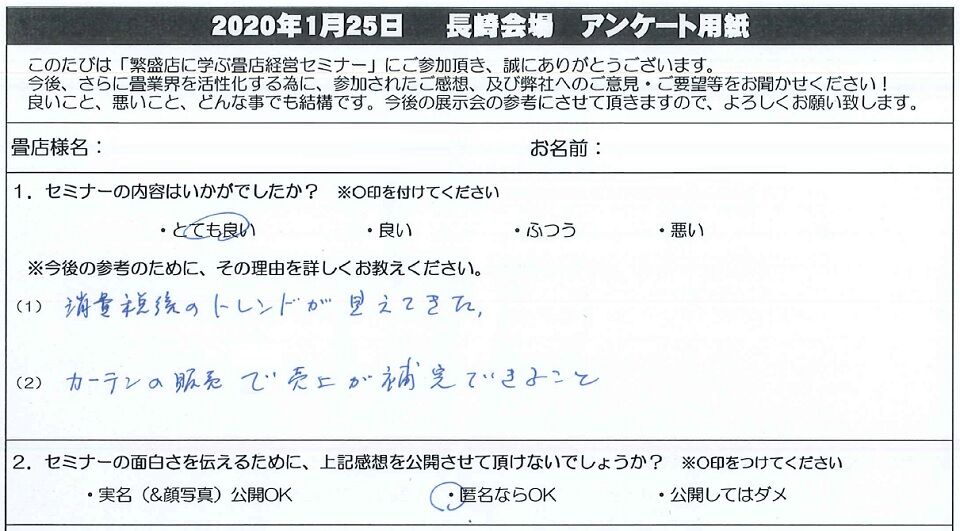 2020年1月25日 長崎会場 アンケート用紙
このたびは「繁盛店に学ぶ畳店経営セミナー」にご参加頂き、誠にありがとうございます。
今後、さらに畳業界を活性化する為に、参加されたご感想、及び弊社へのご意見・ご要望等をお聞かせください！
良いこと、悪いこと、どんな事でも結構です。今後の展示会の参考にさせて頂きますので、よろしくお願い致します。
畳店様名： お名前：
1．セミナーの内容はいかがでしたか？ ※〇印を付けてください
・とても良い ・良い ・ふつう ・悪い
※今後の参考のために、その理由を詳しくお教えください。
(1) 消費税後のトレンドが見えてきた。
(2) カーテンの販売で売上が補完できること
2．セミナーの面白さを伝えるために、上記感想を公開させて頂けないでしょうか？ ※〇印をつけてください
・実名（&顔写真）公開OK ・匿名ならOK ・公開してはダメ